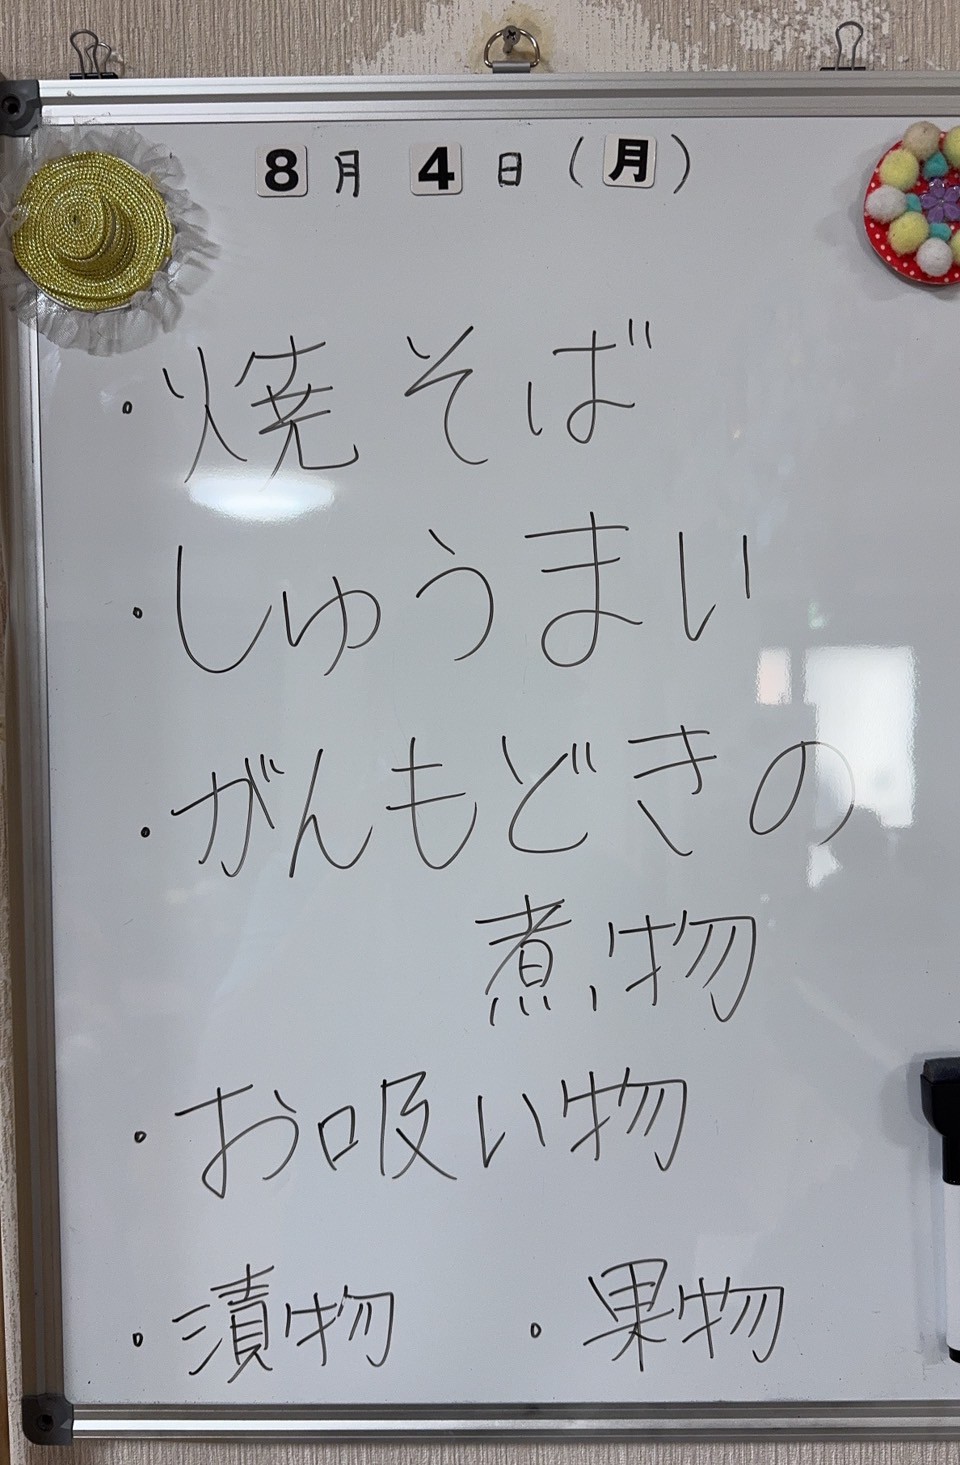 8月4日（月）
・焼そば
・しゅうまい
・がんもどきの
煮物
・お吸い物
・漬物 ・果物